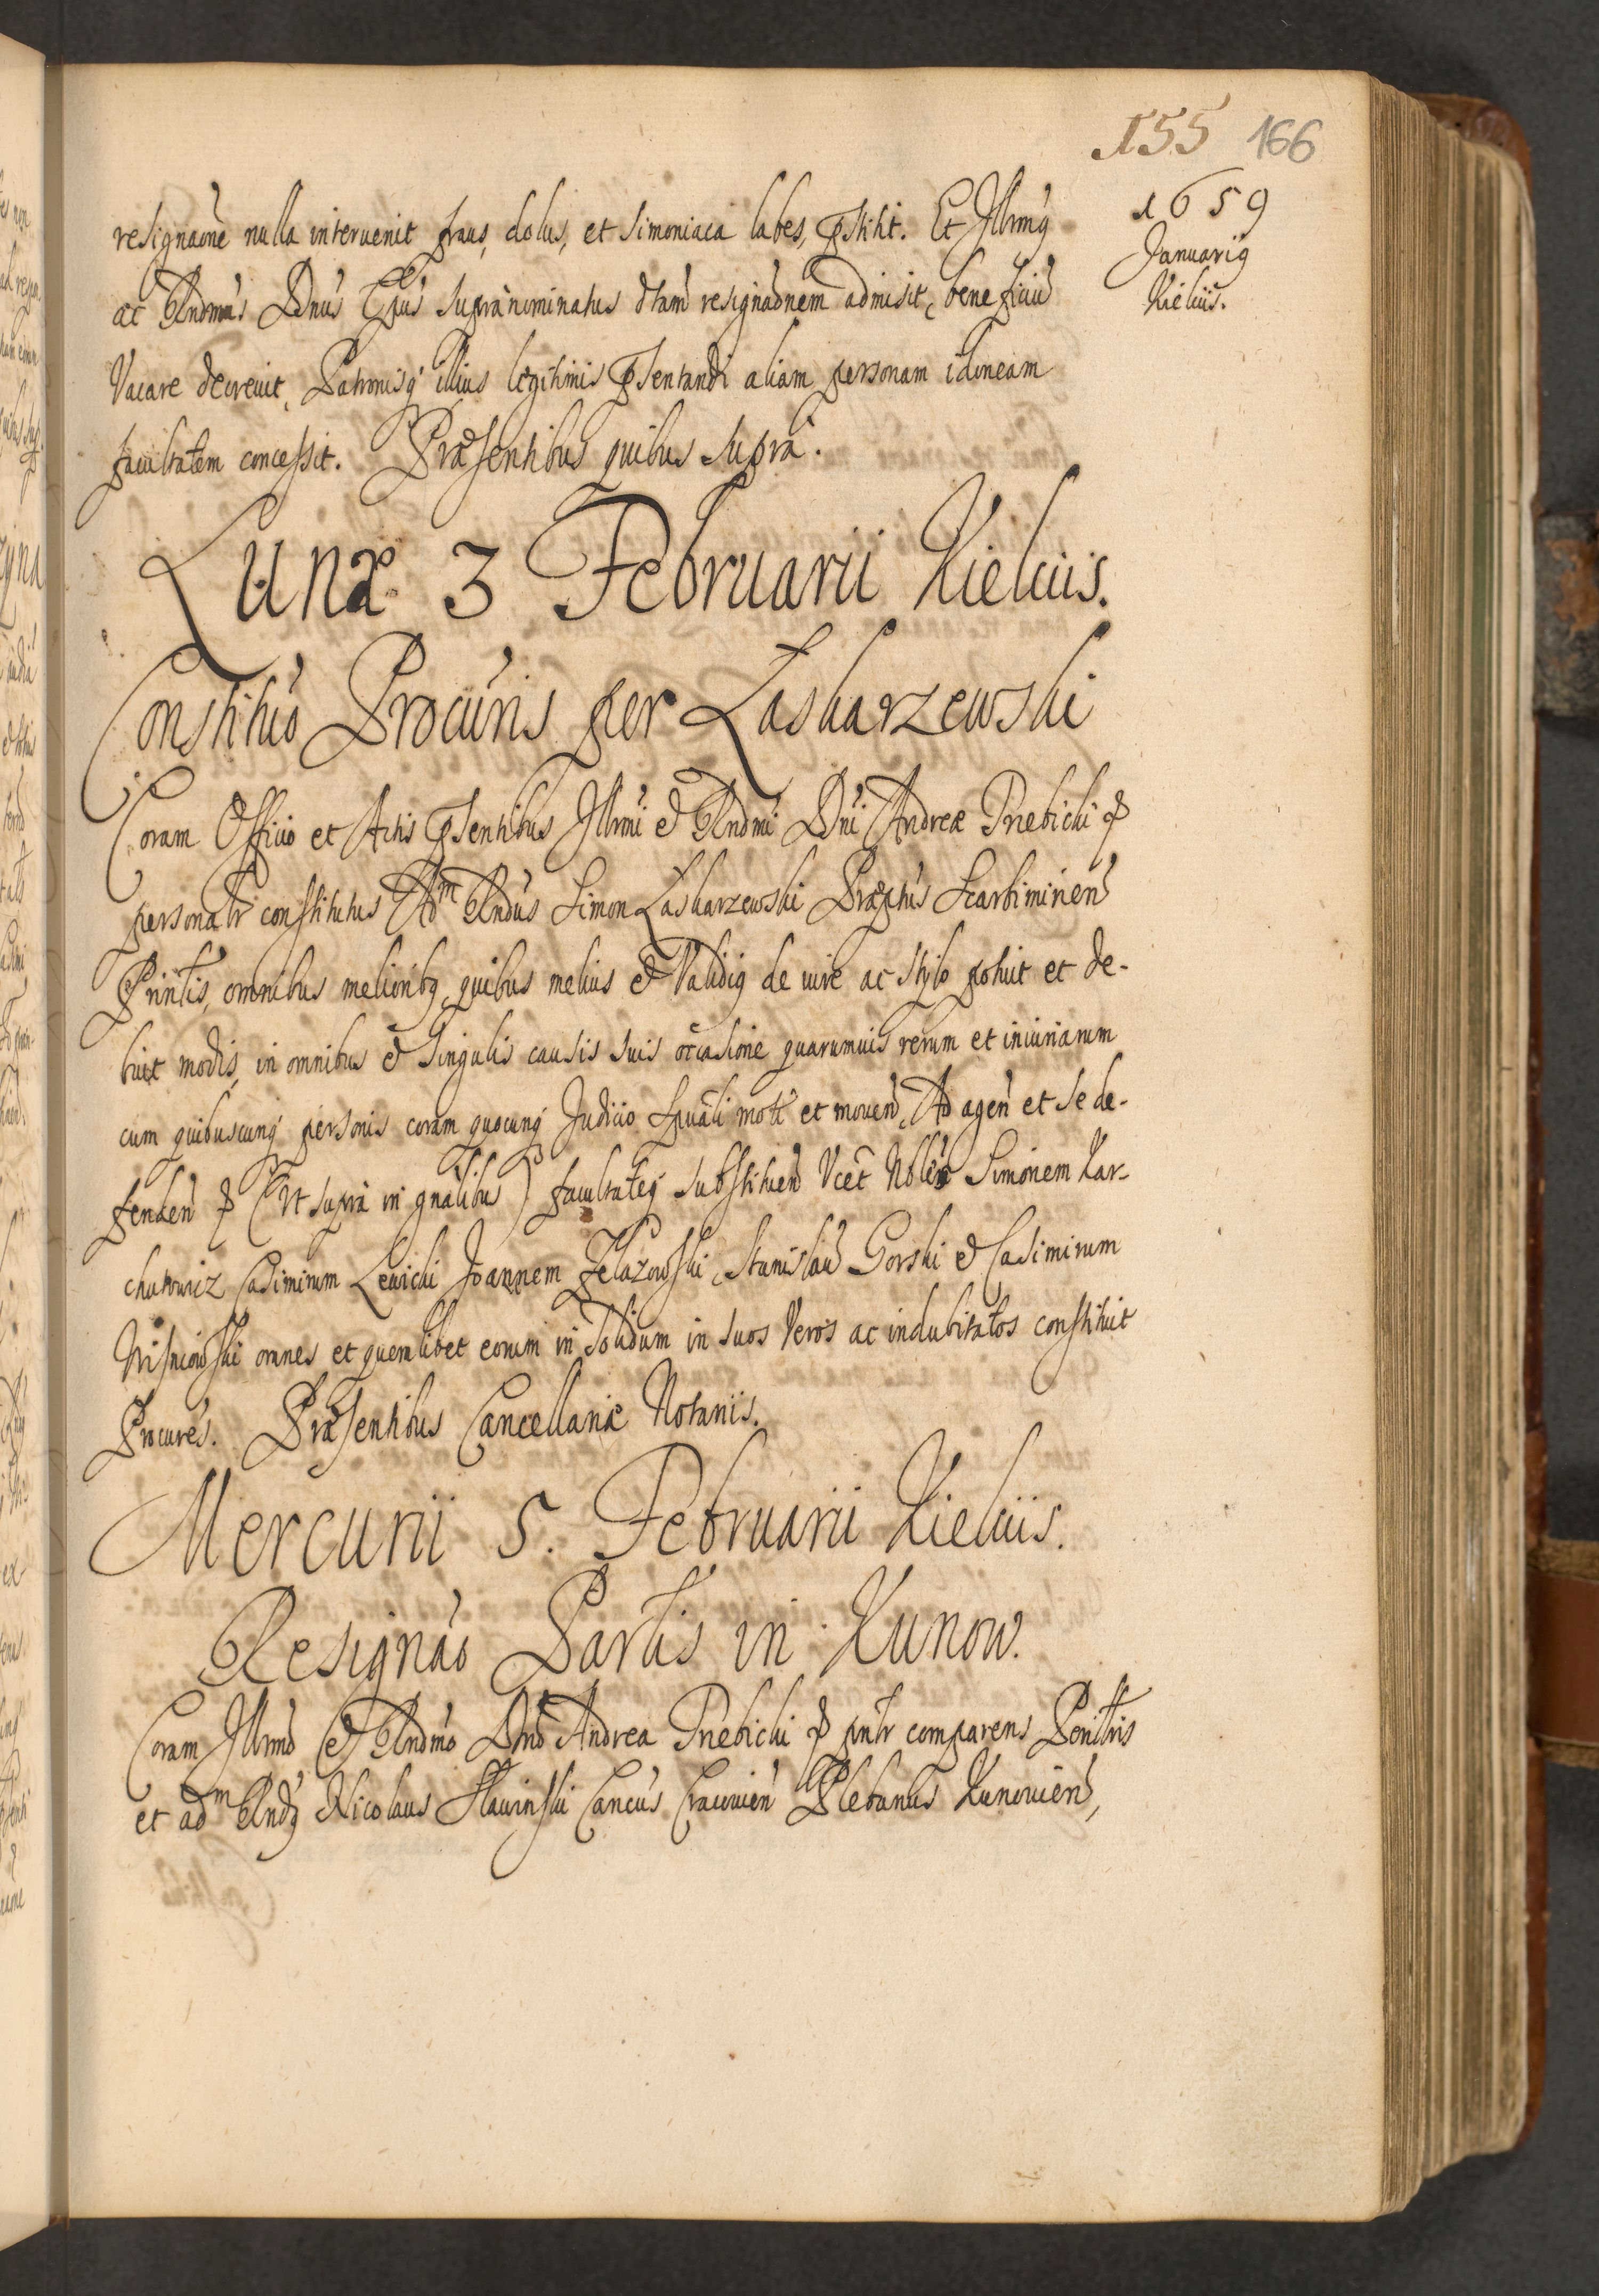 155 166
1659
Januarig
Kielciis.
resignaone nulla interuenit fraus, dolus, et simoniaca labes, pstitit. Et Illrmg
ac Rndmus Dnus Epus supranominatus dtam resignaonem admisit, beneficiu
Vacare decreuit, Patronisq illius legitimis psentandi aliam personam idoneam
facultatem concessit. Præsentibus quibus supra.
Lunæ 3 Februarii Kielciis.
Constitúo Procuris per Laskarzewski
Coram Officio et Actis psentibus Illrmi & Rndmi Dni Andreæ Trzebicki &
personalr constitutus Adm Rndus Simon Laskarzewski Præptus Scarbimirien
Printis, omnibus melioribg, quibus melius & Validig de iure ac stylo potuit et de-
buit modis, in omnibus & singulis causis suis occasione quarumuis rerum et iniuriarum
cum quibuscunq personis coram quocunq Judicio Spuali mot et mouen, Ad agen et se de-
fenden & (Vt supra in gnalibus) facultateq substituen Vcet Noblem Simonem Kar-
chutowicz Casimirum Lewicki Joannem Zelazowski, Stanislau Gorski & Casimirum
Wisniowski omnes et quemlibet eorum in Solidum in suos Veros ac indubitatos constituit
Procures. Præsentibus Cancellariæ Notariis.
Mercurii 5. Februarii Kielciis.
Resignáo Partis in Kunow.
Coram Illrmo & Rndmo Dno Andrea Trzebicki & pntr comparens
et adm Rndg Nicolaus Slawinski Cancus Cracouien Plebanus Kunouien,